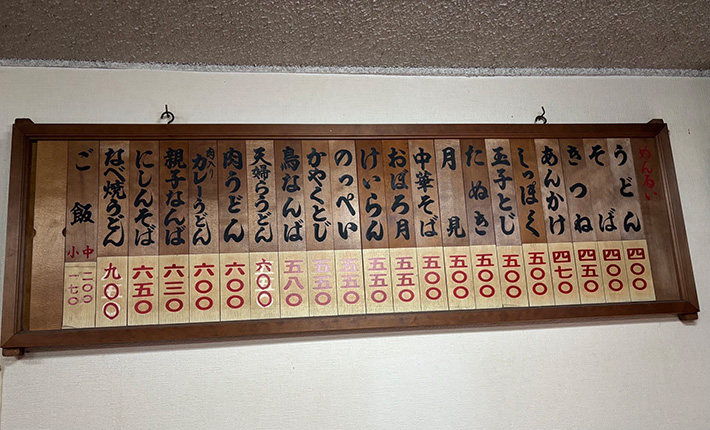 めんるい
うどん 四〇〇
そば 四〇〇
きつね 四五〇
あんかけ 四七〇
しっぽく 五〇〇
玉子とじ 五〇〇
たぬき 五〇〇
月見 五〇〇
中華そば 五〇〇
おぼろ月 五五〇
けいらん 五五〇
のっぺい 五五〇
かやくとじ 五五〇
鳥なんば 五八〇
天婦らうどん 六〇〇
肉うどん 六〇〇
肉入りカレーうどん 六〇〇
親子なんば 六三〇
にしんそば 六五〇
なべ焼うどん 九〇〇
ご飯 中 二〇〇
小 一七〇